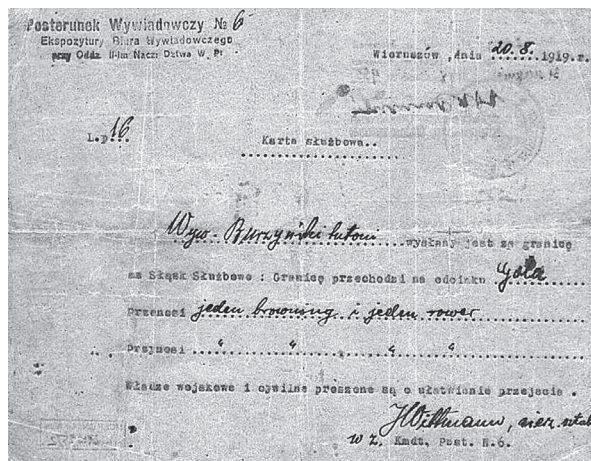 Posterunek Wywiadowczy № 6
Ekspozytury Biura Wywiadowczego
przy Oddz. II-im Nacz. Dztwa W. P.
Wieruszów, dnia 20.8. 1919.r.
L.p. 16
Karta służbowa..
Wyw. Burzyński Antoni wysłany jest za granicę
na Śląsk Służbowo : Granicę przechodzi na odcinku Gola
Przenosi jeden browning i jeden rower
Przynosi " " " "
Władze wojskowe i cywilne proszone są o ułatwianie przejścia .
JWittmann,
w z. Kmdt. Post. N.6.